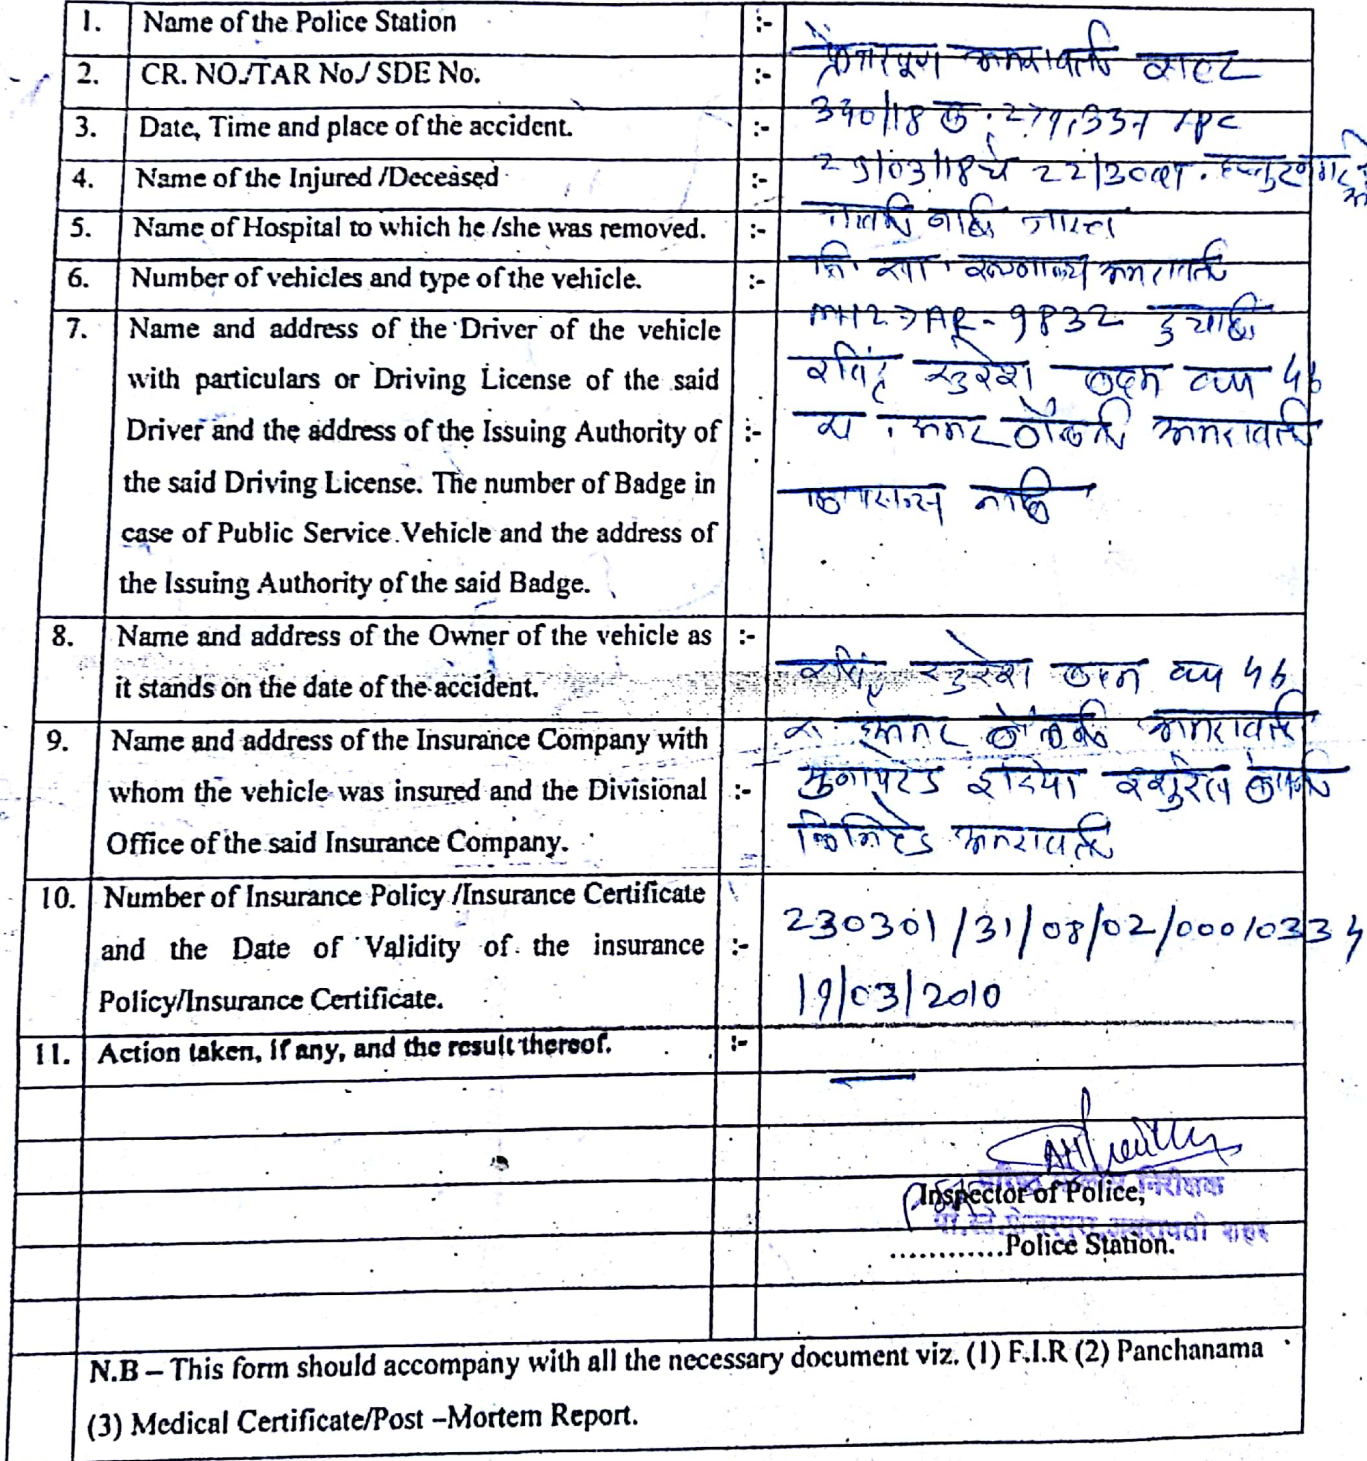 1. Name of the Police Station :- फ्रेजरपुरा अमरावती शहर
2. CR. NO./TAR No./ SDE No. :- 390/18 क. 279,337 IPC
3. Date, Time and place of the accident. :- 29/03/18 चे 22/30 वा.
4. Name of the Injured /Deceased :-
5. Name of Hospital to which he /she was removed. :- अमरावती
6. Number of vehicles and type of the vehicle. :- MH27AR-9832 दुचाकी
7. Name and address of the Driver of the vehicle
with particulars or Driving License of the said
Driver and the address of the Issuing Authority of :-
the said Driving License. The number of Badge in
case of Public Service Vehicle and the address of
the Issuing Authority of the said Badge.
सुरेश वय 56
रा. अमरावती
लायसन्स नाही
8. Name and address of the Owner of the vehicle as :-
it stands on the date of the accident.
सुरेश वय 56
रा. अमरावती
9. Name and address of the Insurance Company with
whom the vehicle was insured and the Divisional :-
Office of the said Insurance Company.
युनायटेड इंडिया इंशुरंस कंपनी
लिमिटेड अमरावती
10. Number of Insurance Policy /Insurance Certificate
and the Date of Validity of the insurance :-
Policy/Insurance Certificate.
230301/31/08/02/000/0334
19/03/2010
11. Action taken, if any, and the result thereof. :- —
वरिष्ठ पोलीस निरीक्षक
Inspector of Police,
पो.स्टे.फ्रेजरपुरा,अमरावती शहर
............Police Station.
N.B – This form should accompany with all the necessary document viz. (1) F.I.R (2) Panchanama
(3) Medical Certificate/Post –Mortem Report.